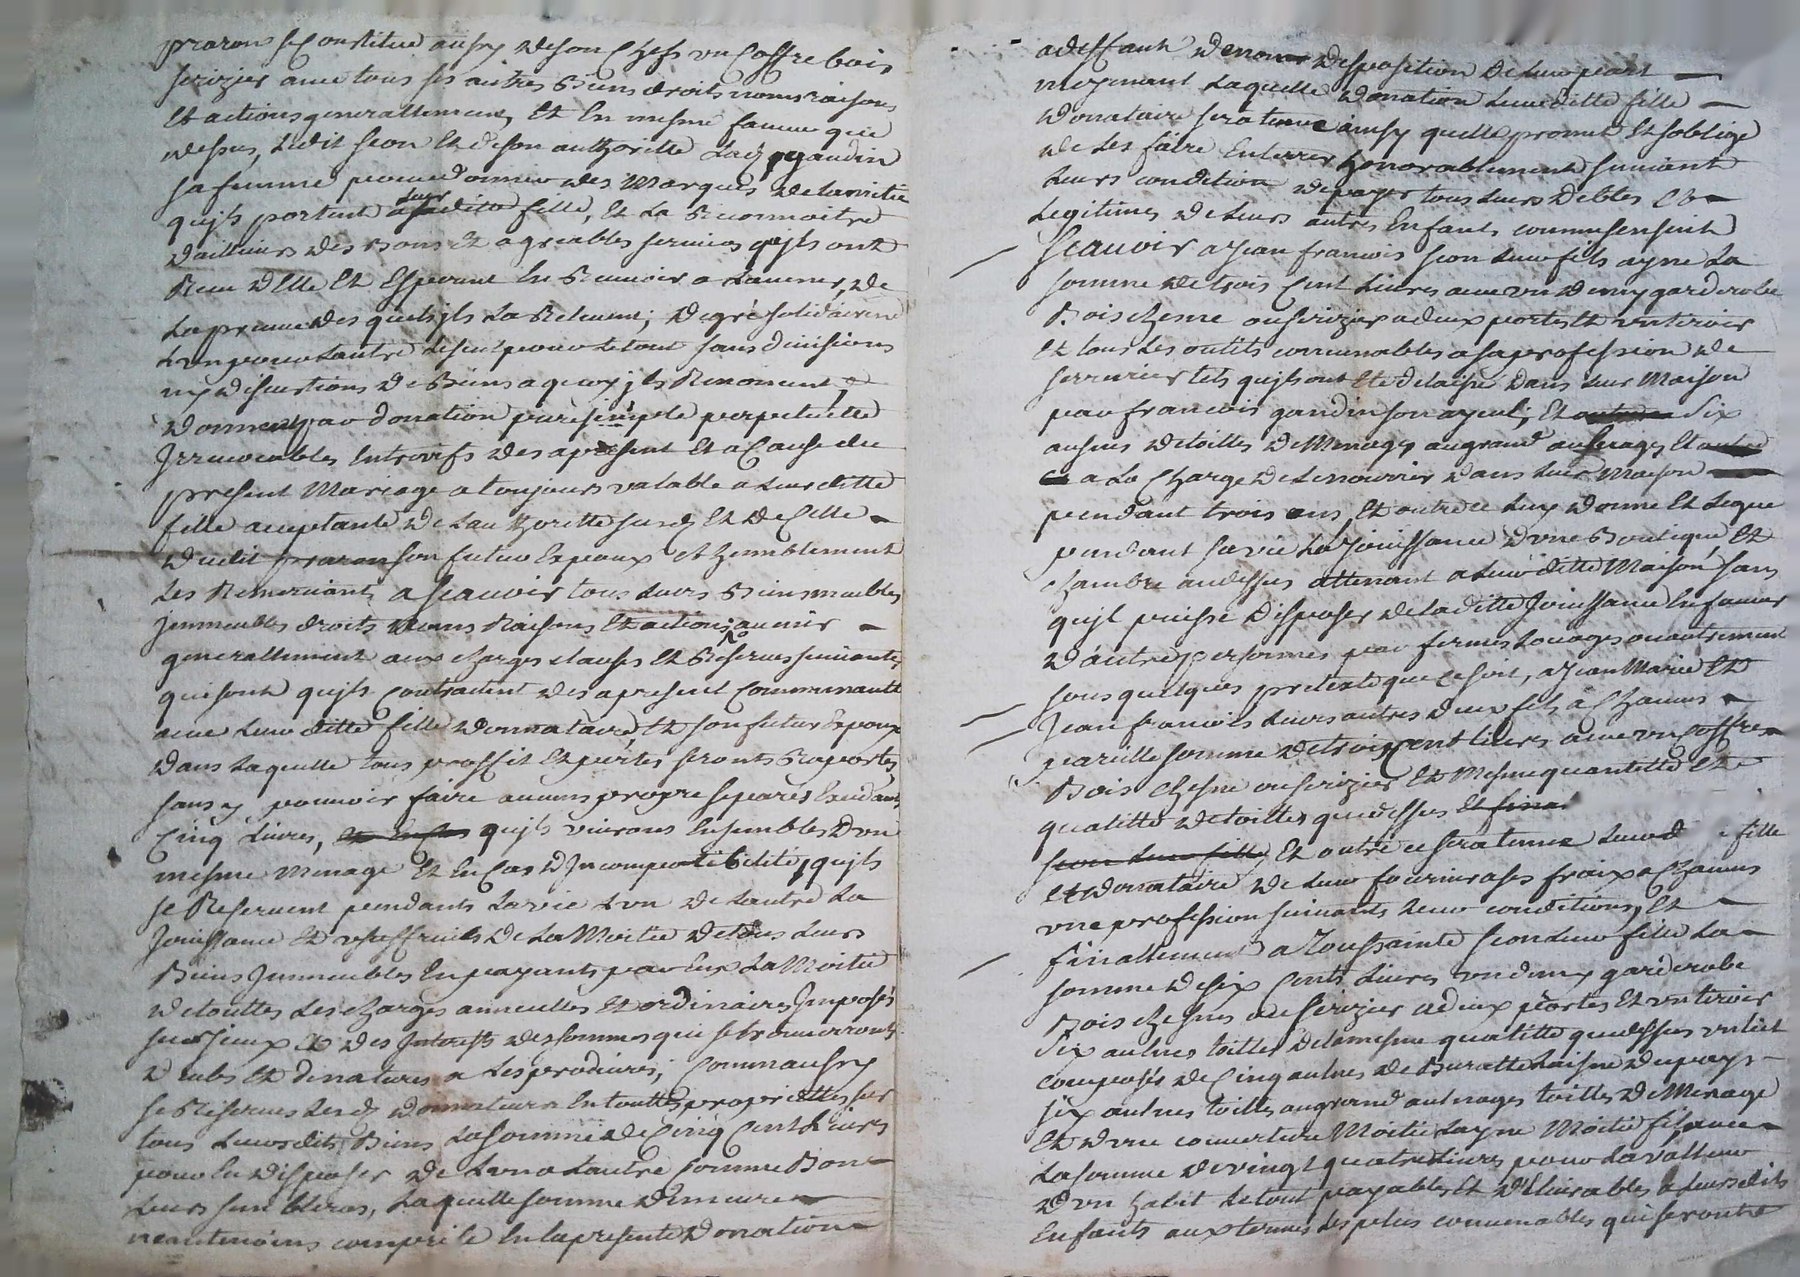 prarons se Constitue aussy de son Chefs un Coffre bois
serizier avec tous ses autres Biens droits noms raisons
Et actions generallement, Et En mesme faveur que
dessus, ledit Seon Et de son authoritté lad. gaudin
sa femme pour donner des Marques de lamitié
qu'jls portent a leur ditte fille, Et la Reconnoitre
dailleurs des bons Et agreables services qu'jls ont
Receu d'Elle Et Esperent En Recevoir a lavenir, de
la preuve des quels jls la Relevent; de gré solidairemt
lun pour lautre le seul pour le tout sans divisions
ny discutions de Biens a quoy jls Renoncent,
donnent par donation pure simple perpetuelle
Jrrevocables Entrevifs des apresent Et a Cause du
present Mariage a toujours valable a leur ditte
fille acceptante de lauthoritté susd. Et de Celle
dudit prarons son futur Espoux et humblement
les Remerciant, a scavoir tous leurs Biens meubles
jmmeubles droits noms Raisons Et actions avenir
generallement aux charges clauses Et Reserves suivantes
qui sont qu'jls Contractent des apresent Communauté
avec leur ditte fille donnataire, Et son futur Epoux
dans laquelle tous proffit Et pertes seronts Raportés
sans y pouvoir faire aucuns propre separés Excedant
Cinq livres, qu'jls vivrons Ensembles d'un
mesme menage Et En Cas d'Jncompatibilité, qu'jls
se Reservent pendants la vie lun de lautre la
Jouissance Et usuffruits de la Moitié de tous leurs
Biens Jmmeubles En payants par Eux la Moitié
de touttes les charges annuelles Et ordinaires Jmposés
sur jceux Et des Jnterests des sommes qui se trouverronts
dubs Et de natures a les produires, Comm aussy
se Reserves lesd. donnateurs En touttes proprietté sur
tous leursdits Biens la somme de Cinq Cent livres
pour En disposer de lun a lautre Comme Bon
leurs semblera, laquelle somme demeure
neantmoins comprise En la presente donation
a deffaut de disposition de leur part
moyenant laquelle donation leur ditte fille
donataire sera tenue ainsy quelle promet Et soblige
de les faire Enterrer honorablement suivant
leurs condition de payer tous leurs debtes Et
legitimes de leurs autres Enfants comme sensuit
Scauoir a Jean francois Seon leur fils ayné la
somme de trois Cent livres avec un demy garderobe
Bois chesne ou serizier a deux portes Et un tiroir
Et tous les outils convenables a sa profession de
serrurier tels qu'jls ont Eté delaissé dans leur Maison
par francois gaudin son ayeul; Et six
aulnes de toilles de Menage au grand aulnages Et
a la Charge de le nourrir dans leur Maison
pendant trois ans, Et outre ce luy donne Et legue
pendant sa vie la Jouissance d'une Boutique, Et
chambre au dessus attenant a leur ditte Maison sans
qu'jl puisse disposer de la ditte Jouissance En faveur
d'autre personnes par fermes louages ou autrement
sous quelques pretexte que ce soit, a Jean Marie Et
Jean francois leurs autres deux fils a Chacuns
pareille somme de trois Cent livres avec un Coffre
Bois Chesne ou serizier Et Mesme quantitté Et
qualitté de toilles que dessus Et finat
Seon leur fille, Et outre ce sera tenue leurd fille
Et donataire de leur fournir a ses fraix a Chacuns
une profession suivants leur conditions, Et
finallement a Toussainte Seon leur fille la
somme de six Cents livres un demy garderobe
Bois chesnes ou serizier a deux portes Et un tiroir
six aulnes toilles de la mesme qualitté que dessus un lict
composés de Cinq aulnes de Buratte laisne du pays
six aulnes toilles au grand aulnages toilles de Menage
Et d'une couverture Moitié layne Moitié fil avec
la somme de vingt quatre livres pour la valleur
d'un habit le tout payables Et delivrables a leursdits
Enfants aux termes les plus convenables qui seronts